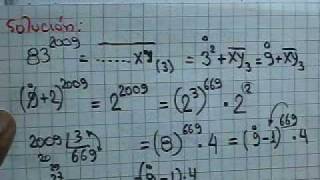 Solución:
83²⁰⁰⁹ = ...... xy₍₃₎ = 3̊² + xy₃ = 9̊ + xy₃
(9̊+2)²⁰⁰⁹ = 2²⁰⁰⁹ = (2³)⁶⁶⁹ · 2²
2009 |3 = (8)⁶⁶⁹ · 4 = (9̊-1)⁶⁶⁹ · 4
20 669
29
27 (9̊-1) · 4